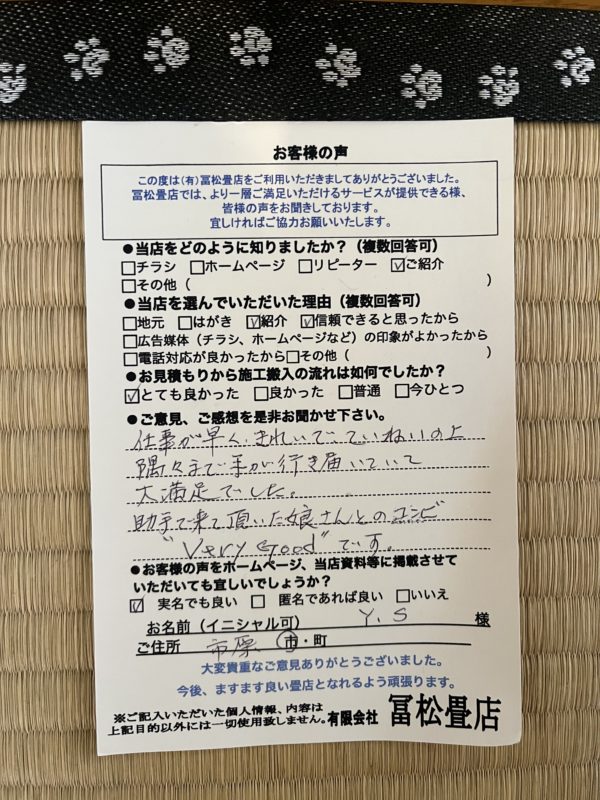 お客様の声
この度は(有)冨松畳店をご利用いただきましてありがとうございました。
冨松畳店では、より一層ご満足いただけるサービスが提供できる様、
皆様の声をお聞きしております。
宜しければご協力お願いいたします。
●当店をどのように知りましたか？（複数回答可）
□チラシ □ホームページ □リピーター ☑ご紹介
□その他（ ）
●当店を選んでいただいた理由（複数回答可）
□地元 □はがき ☑紹介 ☑信頼できると思ったから
□広告媒体（チラシ、ホームページなど）の印象がよかったから
□電話対応が良かったから□その他（ ）
●お見積もりから施工搬入の流れは如何でしたか？
☑とても良かった □良かった □普通 □今ひとつ
●ご意見、ご感想を是非お聞かせ下さい。
仕事が早く、きれいで、ていねいの上
隅々まで手が行き届いていて
大満足でした。
助手で来て頂いた娘さんとのコンビ
"Very Good"です。
●お客様の声をホームページ、当店資料等に掲載させて
いただいても宜しいでしょうか？
☑ 実名でも良い □ 匿名であれば良い □いいえ
お名前（イニシャル可） Y.S 様
ご住所 市原 市・町
大変貴重なご意見ありがとうございました。
今後、ますます良い畳店となれるよう頑張ります。
※ご記入いただいた個人情報、内容は
上記目的以外には一切使用致しません。有限会社 冨松畳店